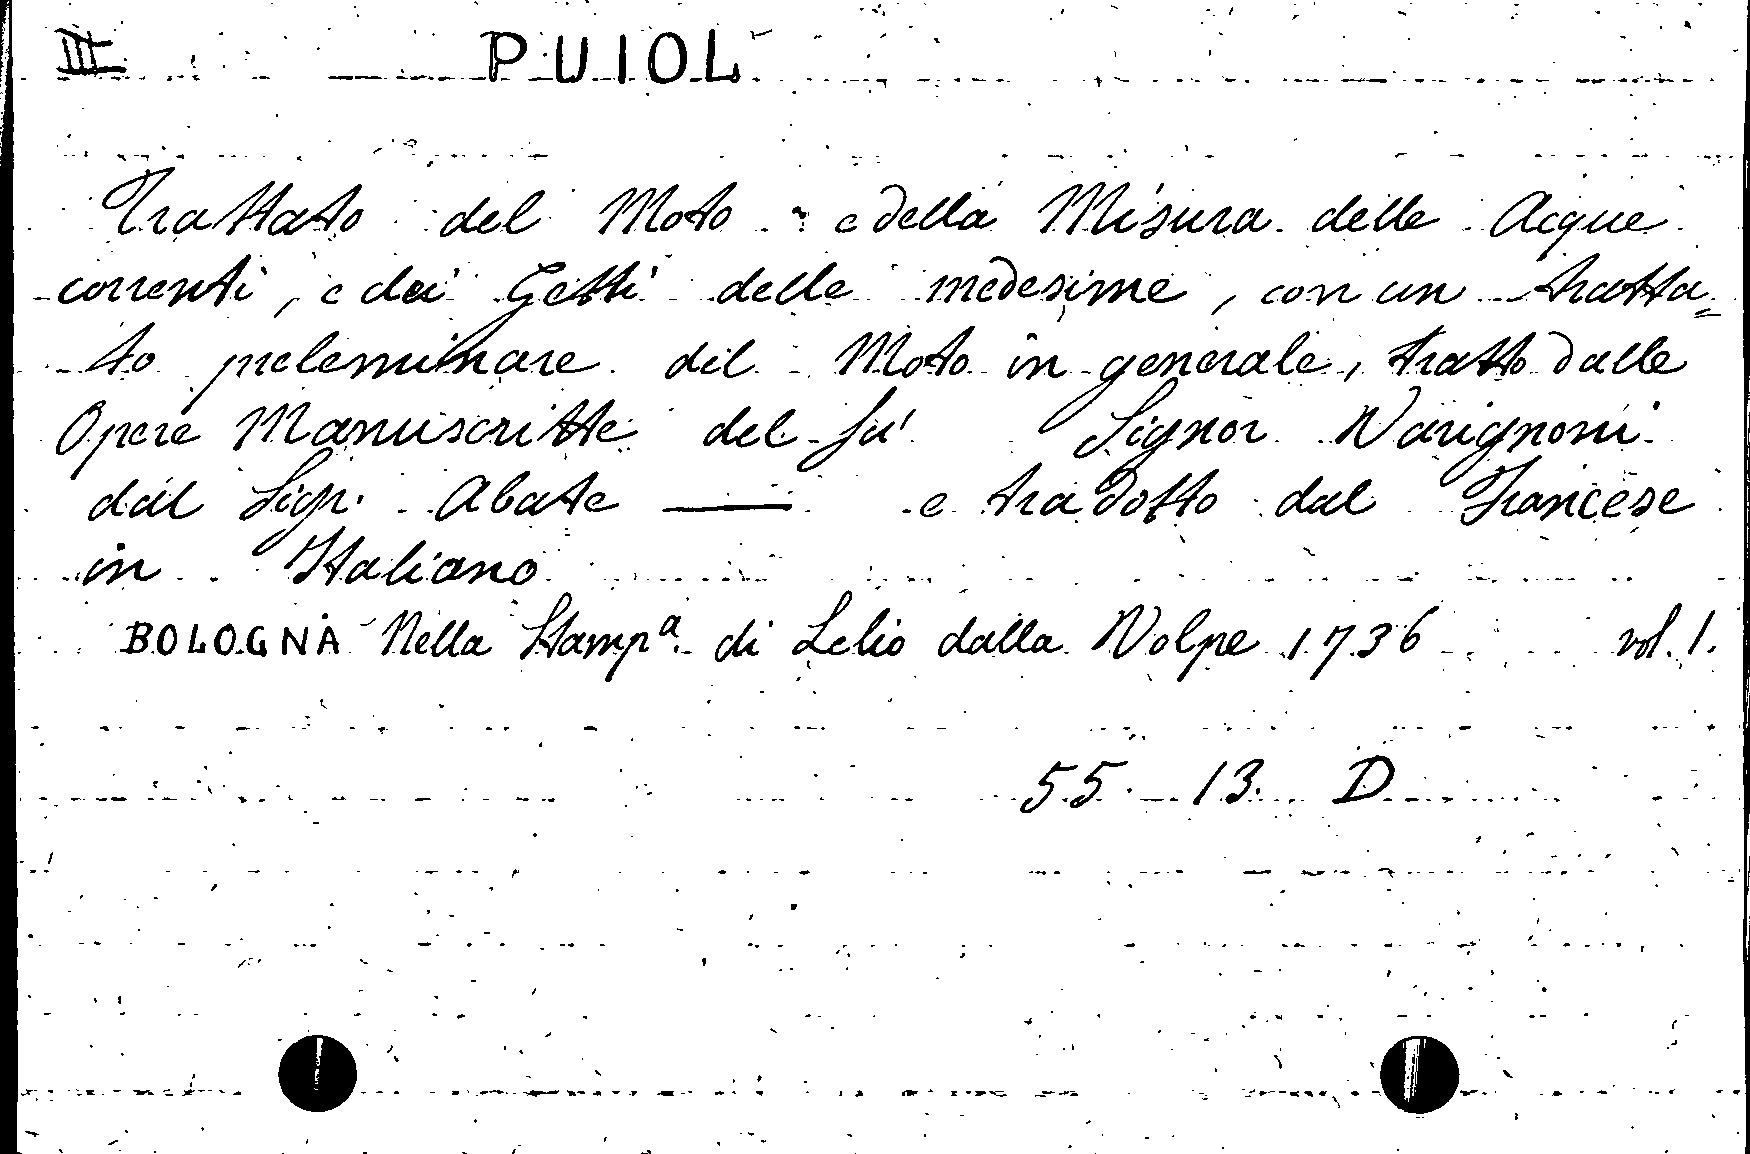 III PUIOL
Trattato del Moto e della Misura delle Acque
correnti, e dei Getti delle medesime, con un tratta=
to preleminare del Moto in generale, tratto dalle
Opere Manuscritte del fu' Signor Varignoni
dal Sigr. Abate —— e tradotto dal Francese
in Italiano
BOLOGNA Nella Stampª. di Lelio dalla Volpe 1736 vol. 1.
55. 13. D